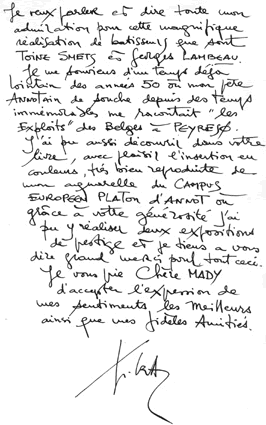 Je veux parler et dire toute mon
admiration pour cette magnifique
réalisation de batisseurs que sont
TOINE SMETS et Georges LAMBEAU.
Je me souviens d'un temps déjà
lointain des années 50 où mon père
ANNOTAIN de souche depuis des temps
immémoriables me racontait "les
Exploits" des Belges - PEYRESQ.
J'ai pu aussi découvrir dans votre
livre, avec plaisir l'insertion en
couleurs, très bien reproduite de
mon aquarelle du CAMPUS
EUROPÉEN PLATON d'ANNOT où
grâce à votre générosité j'ai
pu y réaliser deux expositions
de prestige et je tiens a vous
dire grand merci pour tout ceci.
Je vous prie Chère MADY
d'accepter l'expression de
mes sentiments les Meilleurs
ainsi que mes fidèles Amitiés.